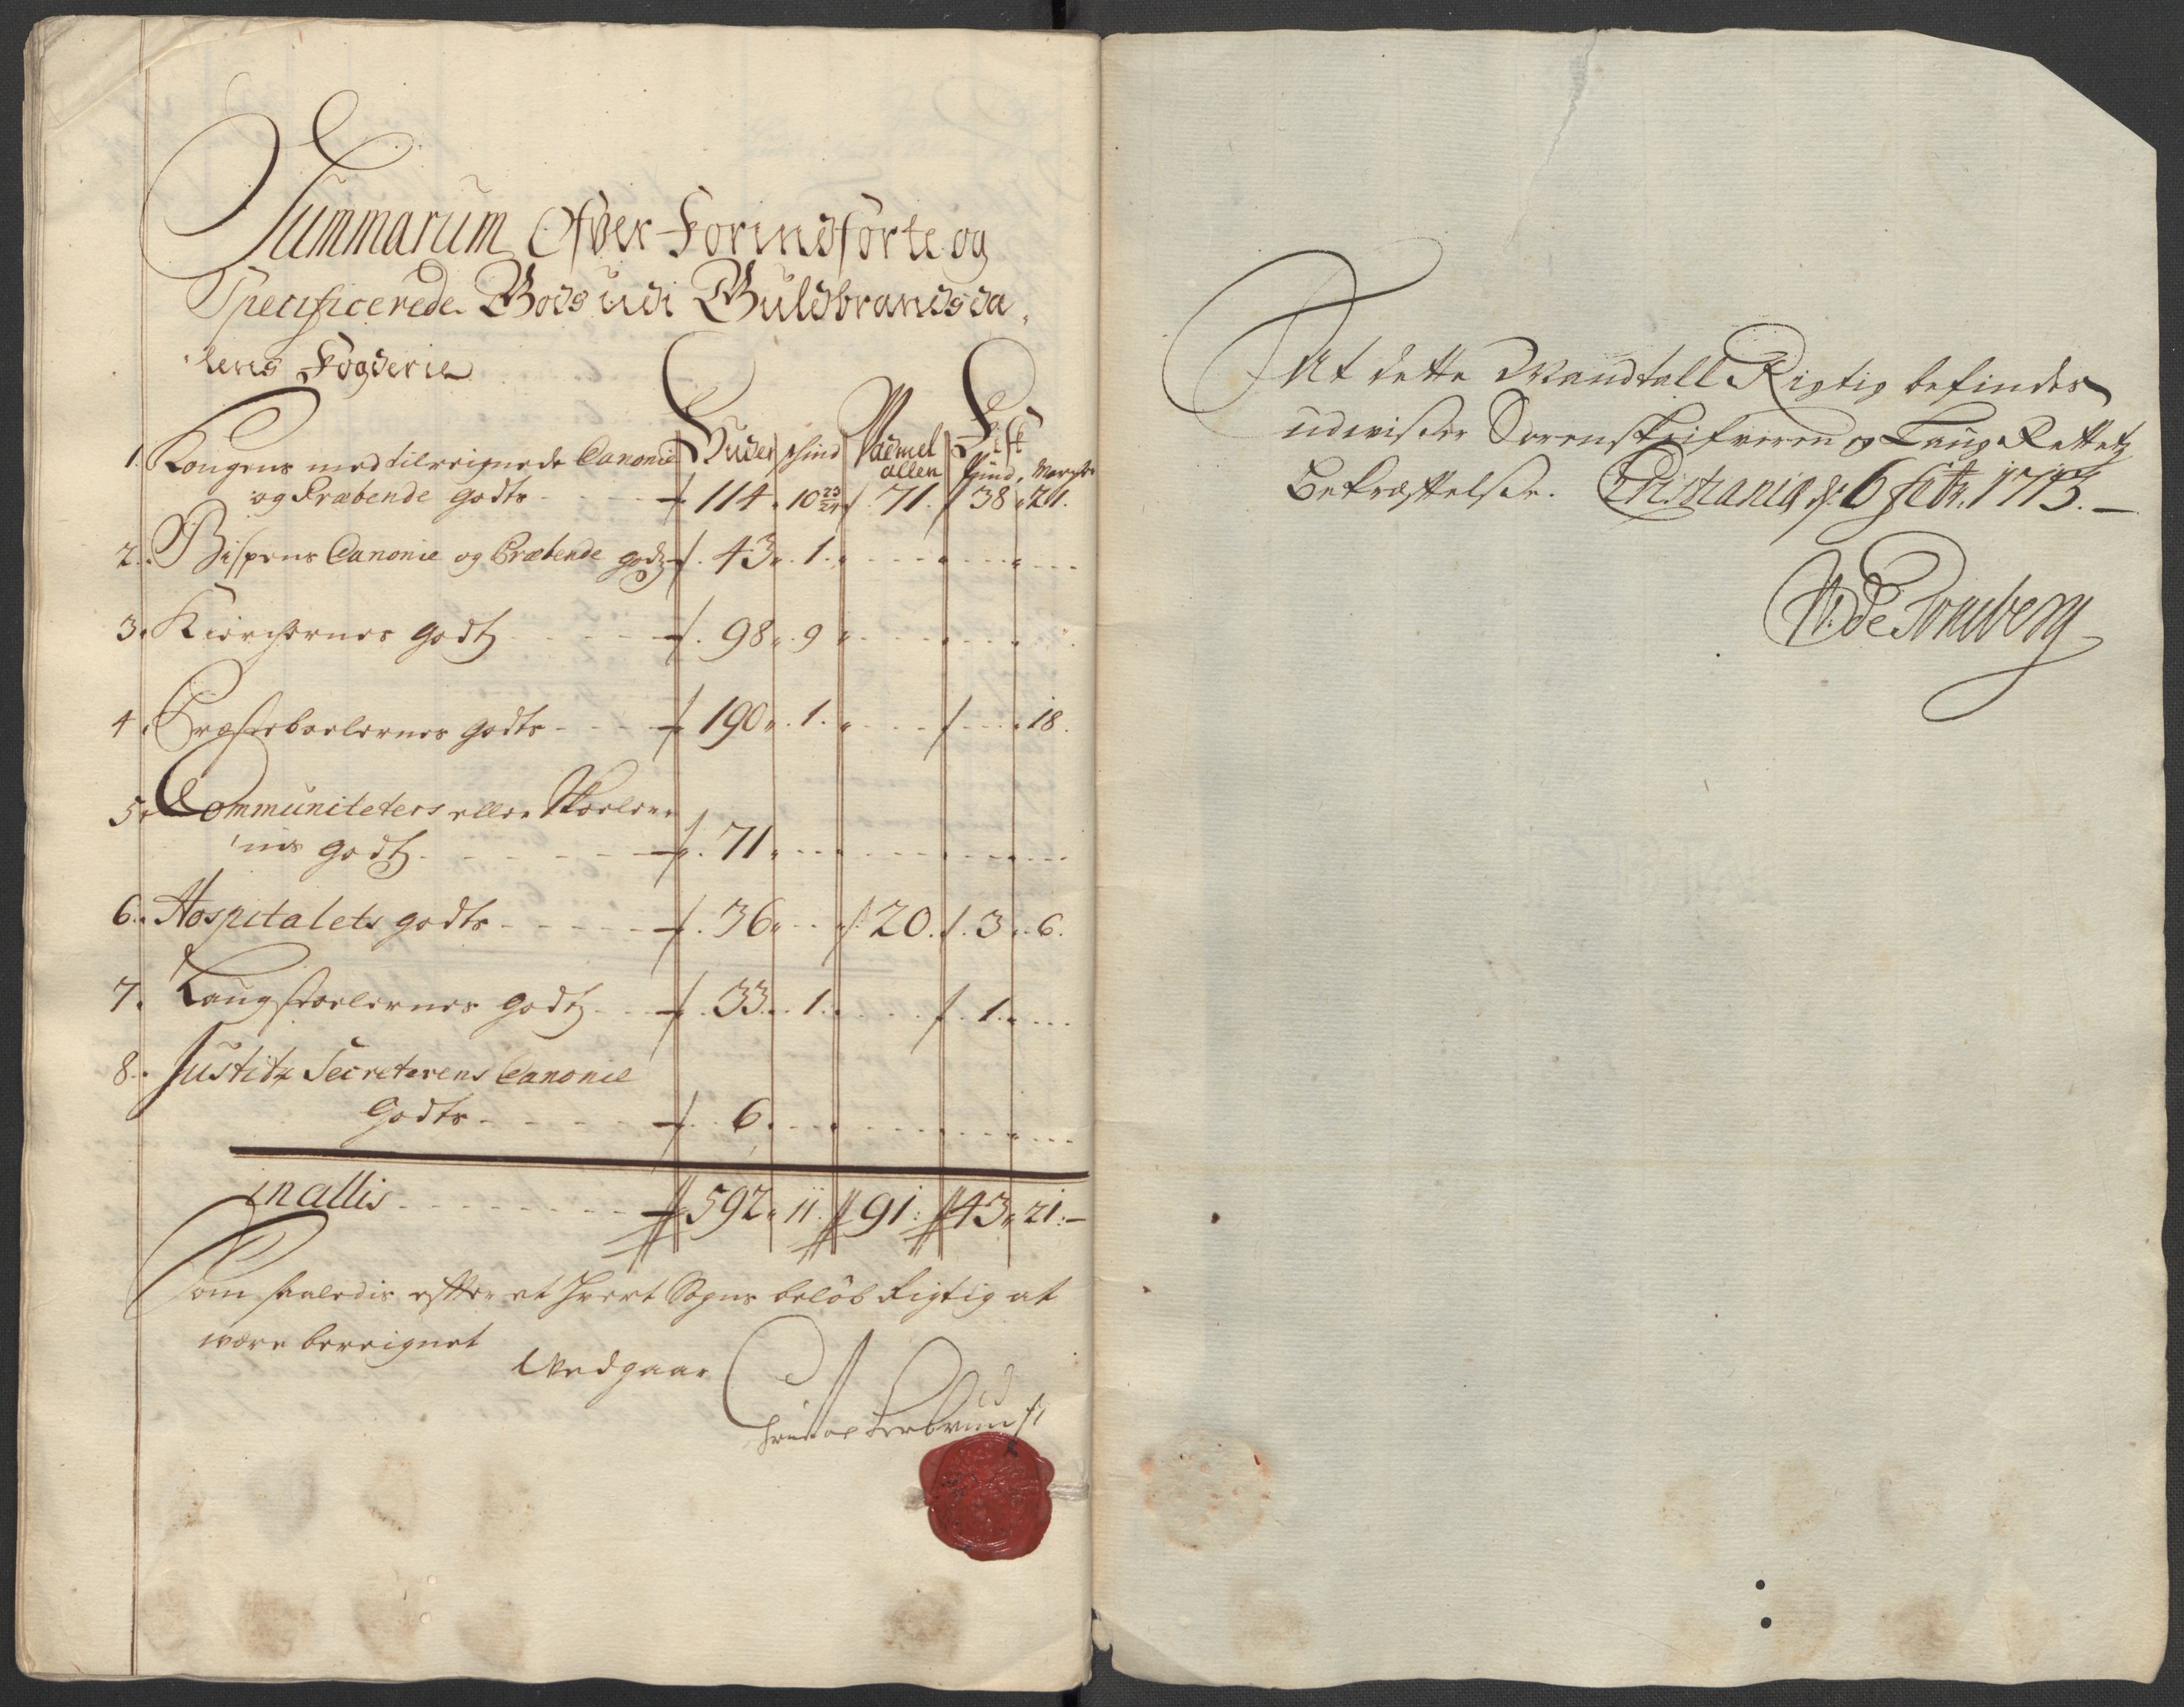 Summarum Ofver Forindförte og
Specificerede Gods udi Guldbrandsda,
lens Fogderie
Huder Skind Vadmel Fisk
allen Pund, Marcher
1. Kongens med tilreignede Canonie
og Præbende godts - - - 114 . 10 23/24 71. 38 . 21.
2. Bispens Canonie og Præbende godz . 43 . 1.
3. Kierchernes godtz - - - . 98 . 9
4. Præsteboelernes godts - - - 190 . 1. 18.
5. Communitetets eller Skoeler
nis godtz. - - - . 71
6. Hospitalets godts - - - . 36 20. . 3 . 6.
7. Laugstoelernes godtz - - . 33 . 1. . 1.
8. Justitz Secreterens Canonie
Godts - - - 6.
In allis - - - 592 . 11. 91: 43 . 21:-
Som saaledis efter et hvert Sogns beløb Rigtig at
være bereignet
Vedgaar
At dette Mandtall Rigtig befindes
udviser Sorenskrifveren og Laug Rettetz
Bekræftelse. Christania d. 6 febr. 1713. -